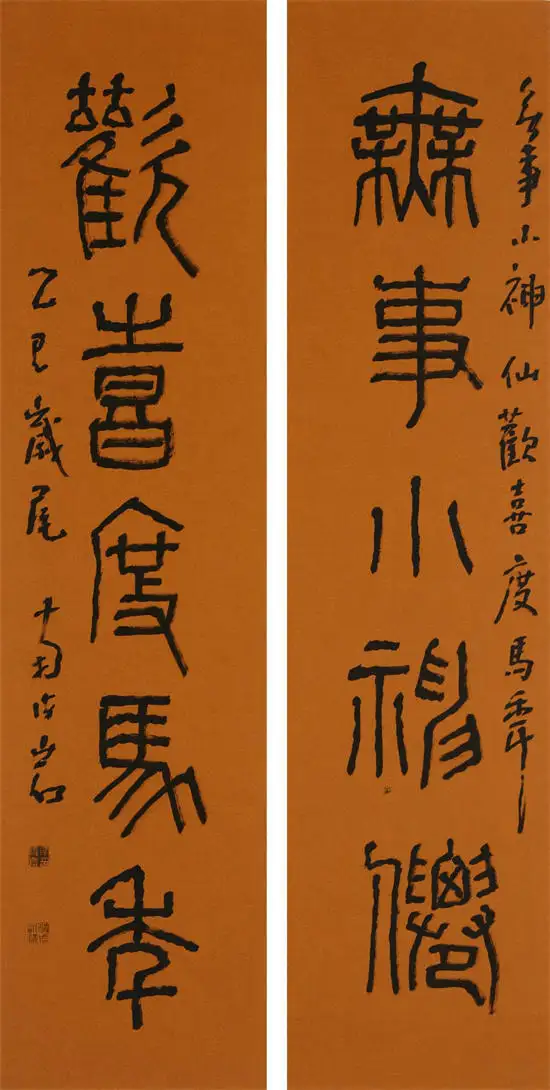 無事小神仙歡喜度馬年
無事小神僊
歡喜度馬年
乙巳歲尾